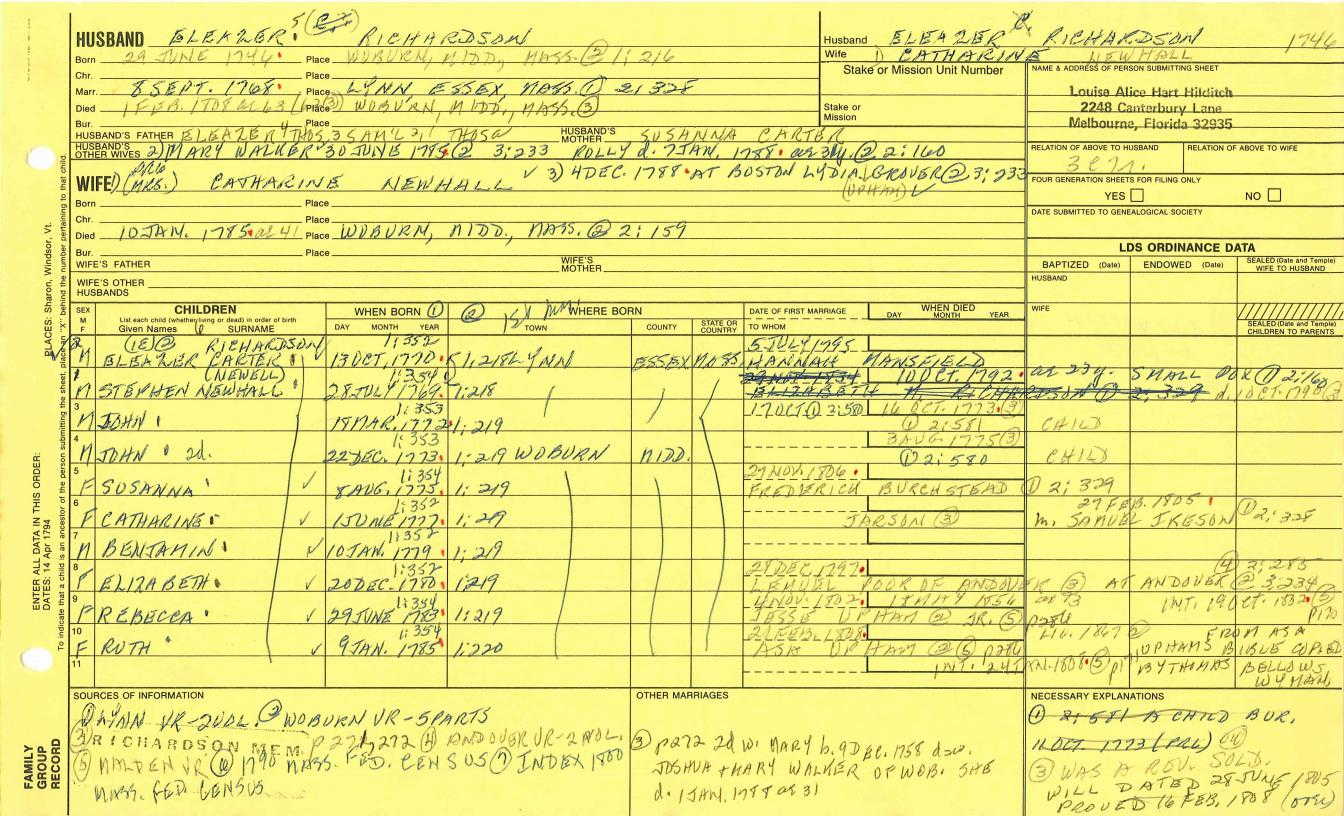 HUSBAND ELEAZER 5 RICHARDSON
Born 29 JUNE 1746 Place WOBURN, MIDD, MASS. ② 1:216
Chr. Place
Marr. 8 SEPT. 1768 Place LYNN, ESSEX, MASS. ① 2:328
Died 1 FEB. 1708 ae 63 Place WOBURN, MIDD, MASS. ③
Bur. Place
HUSBAND'S FATHER ELEAZER 4 THOS. 3 SAM'L 2, 1 THOS HUSBAND'S MOTHER SUSANNA CARTER
HUSBAND'S OTHER WIVES 2) MARY WALKER 30 JUNE 1785 ② 3:233 POLLY d. 7 JAN. 1788 ② 2:160
3) 4 DEC. 1788 AT BOSTON LYDIA GROVER ② 3:233
(UPHAM)
WIFE 1) (MRS.) CATHARINE NEWHALL
Born Place
Chr. Place
Died 10 JAN. 1785 ae 41 Place WOBURN, MIDD, MASS. ② 2:159
Bur. Place
WIFE'S FATHER WIFE'S MOTHER
WIFE'S OTHER HUSBANDS
Husband ELEAZER RICHARDSON 1746
Wife CATHARINE NEWHALL
Stake or Mission Unit Number
Stake or Mission
NAME & ADDRESS OF PERSON SUBMITTING SHEET
Louise Alice Hart Hilditch
2248 Canterbury Lane
Melbourne, Florida 32935
RELATION OF ABOVE TO HUSBAND RELATION OF ABOVE TO WIFE
FOUR GENERATION SHEETS FOR FILING ONLY
YES NO
DATE SUBMITTED TO GENEALOGICAL SOCIETY
LDS ORDINANCE DATA
BAPTIZED (Date) ENDOWED (Date) SEALED (Date and Temple) WIFE TO HUSBAND
HUSBAND
WIFE
SEALED (Date and Temple) CHILDREN TO PARENTS
SEX M F
CHILDREN
List each child (whether living or dead) in order of birth
Given Names SURNAME
WHEN BORN ① DAY MONTH YEAR
② WHERE BORN TOWN COUNTY STATE OR COUNTRY
DATE OF FIRST MARRIAGE TO WHOM
WHEN DIED DAY MONTH YEAR
RICHARDSON 1:352 5 JULY 1795
M ELEAZER CARTER 13 OCT. 1770 1:218 LYNN ESSEX MASS. HANNAH MANSFIELD
(NEWELL) 1:354 10 OCT. 1792 ae 23y. SMALL POX ① 2:160
M STEPHEN NEWHALL 28 JULY 1769 1:218
3 1:353 16 OCT. 1773 ③
M JOHN 18 MAR. 1772 1:219 ① 2:581 CHILD
4 1:353 3 AUG 1775 ③
M JOHN 2d. 22 DEC. 1773 1:219 WOBURN MIDD. ① 2:580 CHILD
5 1:354 27 NOV. 1806
F SUSANNA 8 AUG. 1775 1:219 FREDERICK BURCHSTEAD ① 2:329
6 1:352 27 FEB. 1805
F CATHARINE 1 JUNE 1777 1:219 JARSON ③ m. SAMUEL IRESON ① 2:328
7 1:352
M BENJAMIN 10 JAN. 1779 1:219
8 1:352 28 DEC. 1797 ④ 2:285
F ELIZABETH 20 DEC. 1780 1:219 LEMUEL POOR OF ANDOVER ③ AT ANDOVER ② 3:234
9 1:354 4 NOV. 1802 1 MAY 1856 ae 73 INT. 19 OCT. 1832 ⑤
F REBECCA 29 JUNE 1783 1:219 JESSE UPHAM ② JR. ⑤ p286
10 1:354 2 FEB. 1808 LIV. 1867 FROM ASA
F RUTH 9 JAN. 1785 1:220 ASA UPHAM ② ⑤ p286 UPHAMS BIBLE COPIED
11 INT. 24 JAN. 1808 ⑤ BY THOMAS BELLOWS WYMAN
SOURCES OF INFORMATION
① LYNN VR-2VOL. ② WOBURN VR-5PARTS
③ RICHARDSON MEM. p 271,272 ④ ANDOVER VR-2 VOL.
⑤ MALDEN VR ⑥ 1790 MASS. FED. CENSUS ⑦ INDEX 1800
MASS. FED CENSUS
OTHER MARRIAGES
③ p272 2d w. MARY b. 9 DEC. 1758 dau.
JOSHUA + MARY WALKER OF WOB. SHE
d. 1 JAN. 1788 ae 31
NECESSARY EXPLANATIONS
① 2:581 A CHILD BUR.
11 OCT. 1773 (PRL)
③ WAS A REV. SOLD.
WILL DATED 28 JUNE 1805
PROVED 16 FEB. 1808
ENTER ALL DATA IN THIS ORDER:
DATES: 14 Apr 1794
PLACES: Sharon, Windsor, Vt.
To indicate that a child is an ancestor of the person submitting the sheet, place an "X" behind the number pertaining to that child.
FAMILY GROUP RECORD